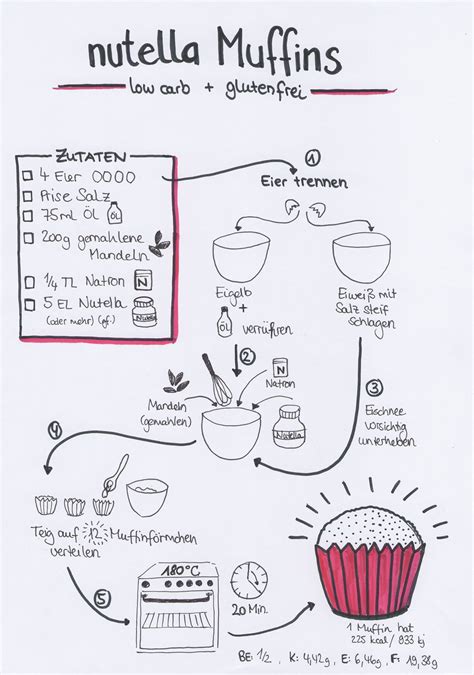 nutella Muffins
low carb + glutenfrei
ZUTATEN
4 Eier
Prise Salz
75ml Öl ÖL
200g gemahlene
Mandeln
1/4 TL Natron N
5 EL Nutella
(oder mehr) (gf.) Nutella
1
Eier trennen
Eigelb
+
ÖL verrühren
Eiweiß mit
Salz steif
schlagen
2
N
Natron
Mandeln
(gemahlen)
Nutella
3
Eischnee
vorsichtig
unterheben
4
Teig auf 12 Muffinförmchen
verteilen
5
180°C
20 Min.
1 Muffin hat
225 kcal / 933 kj
BE: 1/2, K: 4,42g, E: 6,46g, F: 19,38g